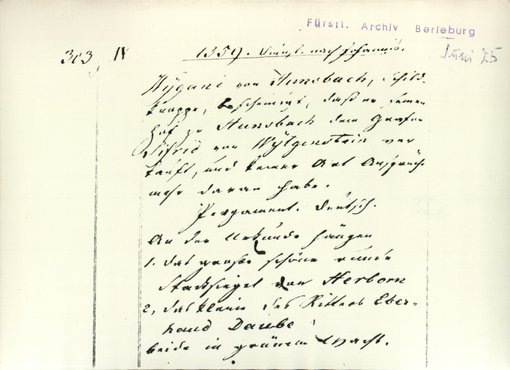 Fürstl. Archiv Berleburg
Juni 75
303 IV 1359. nach Johannis.
Wygant von Hunsbach, Schild-
knappe, bescheinigt, daß er seinen
Hof zu Hunsbach dem Grafen
Sifrid von Wytgenstein ver
kauft, und keiner Art Ansprüch
mehr daran habe.
Pergament. deutsch.
An der Urkunde hängen
1. das große schöne runde
Stadtsiegel von Herborn
2, das kleine des Ritters Eber-
hard Daube
beide in grünem Wachs.